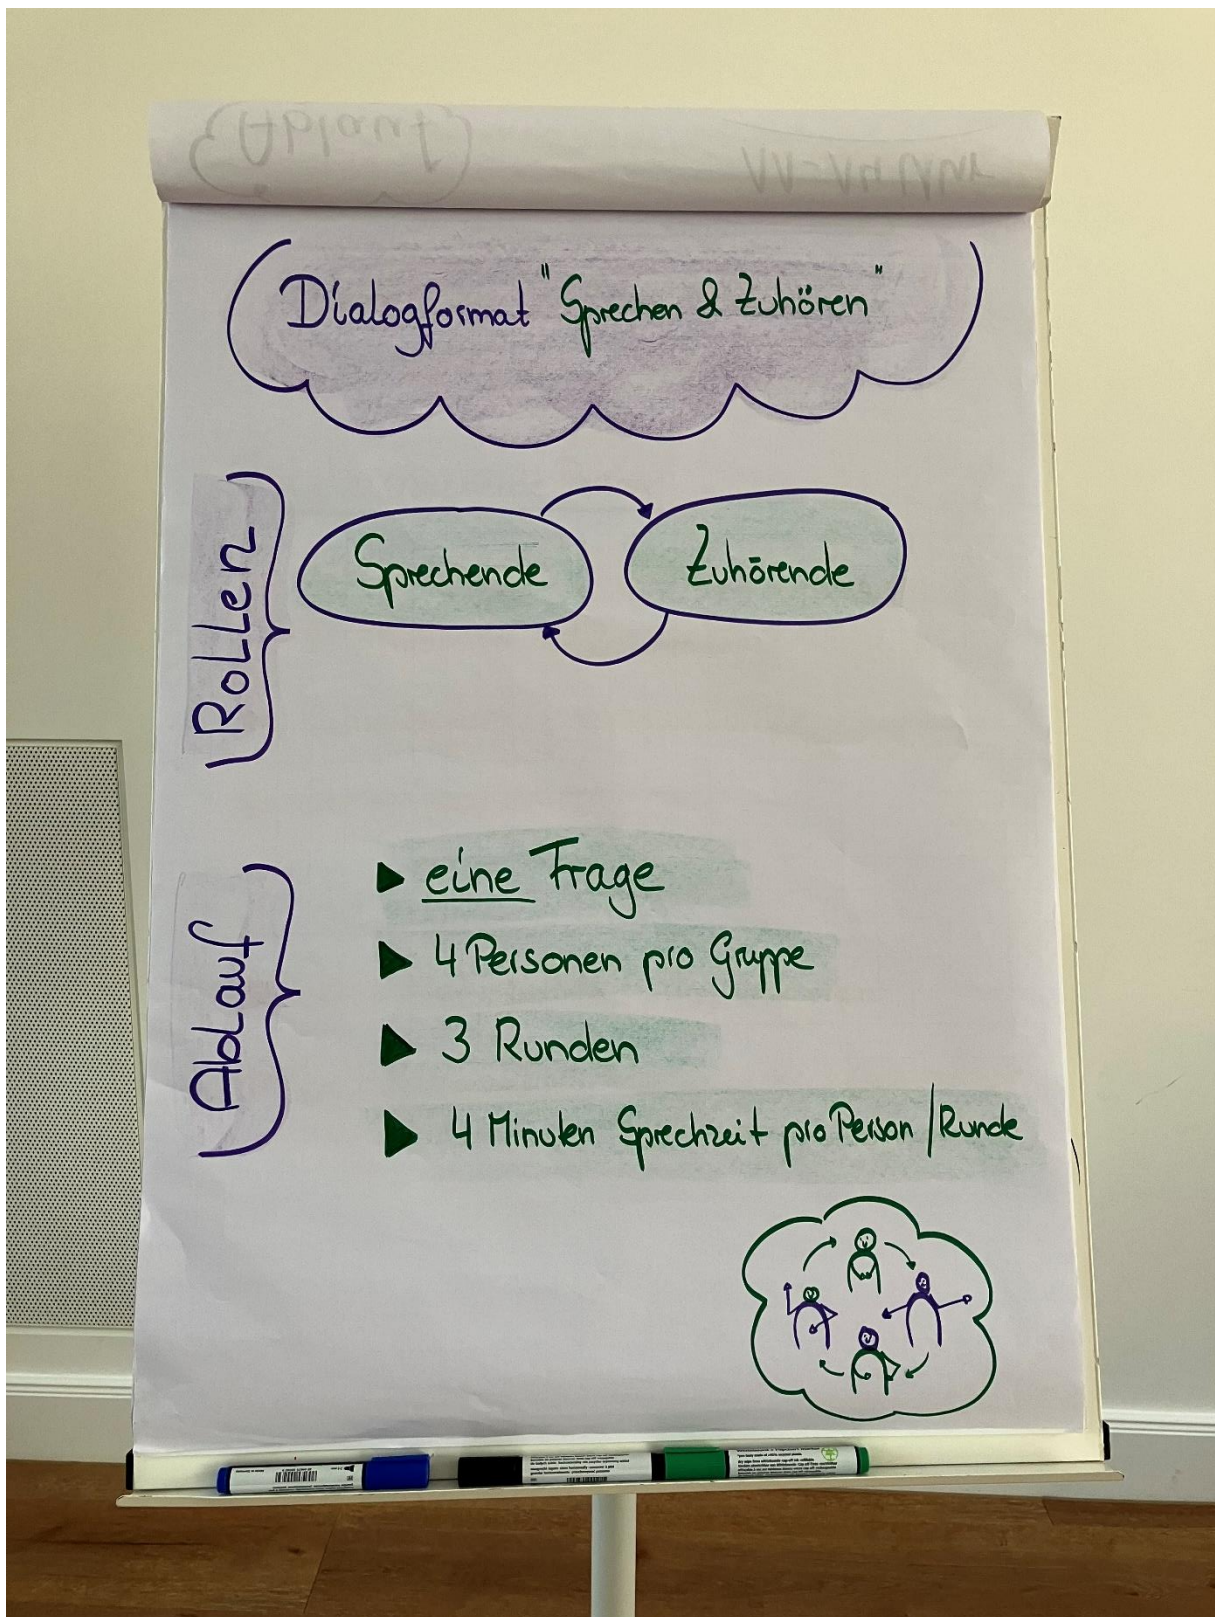 Ablauf
Dialogformat "Sprechen & Zuhören"
Rollen
Sprechende
Zuhörende
Ablauf
eine Frage
4 Personen pro Gruppe
3 Runden
4 Minuten Sprechzeit pro Person / Runde